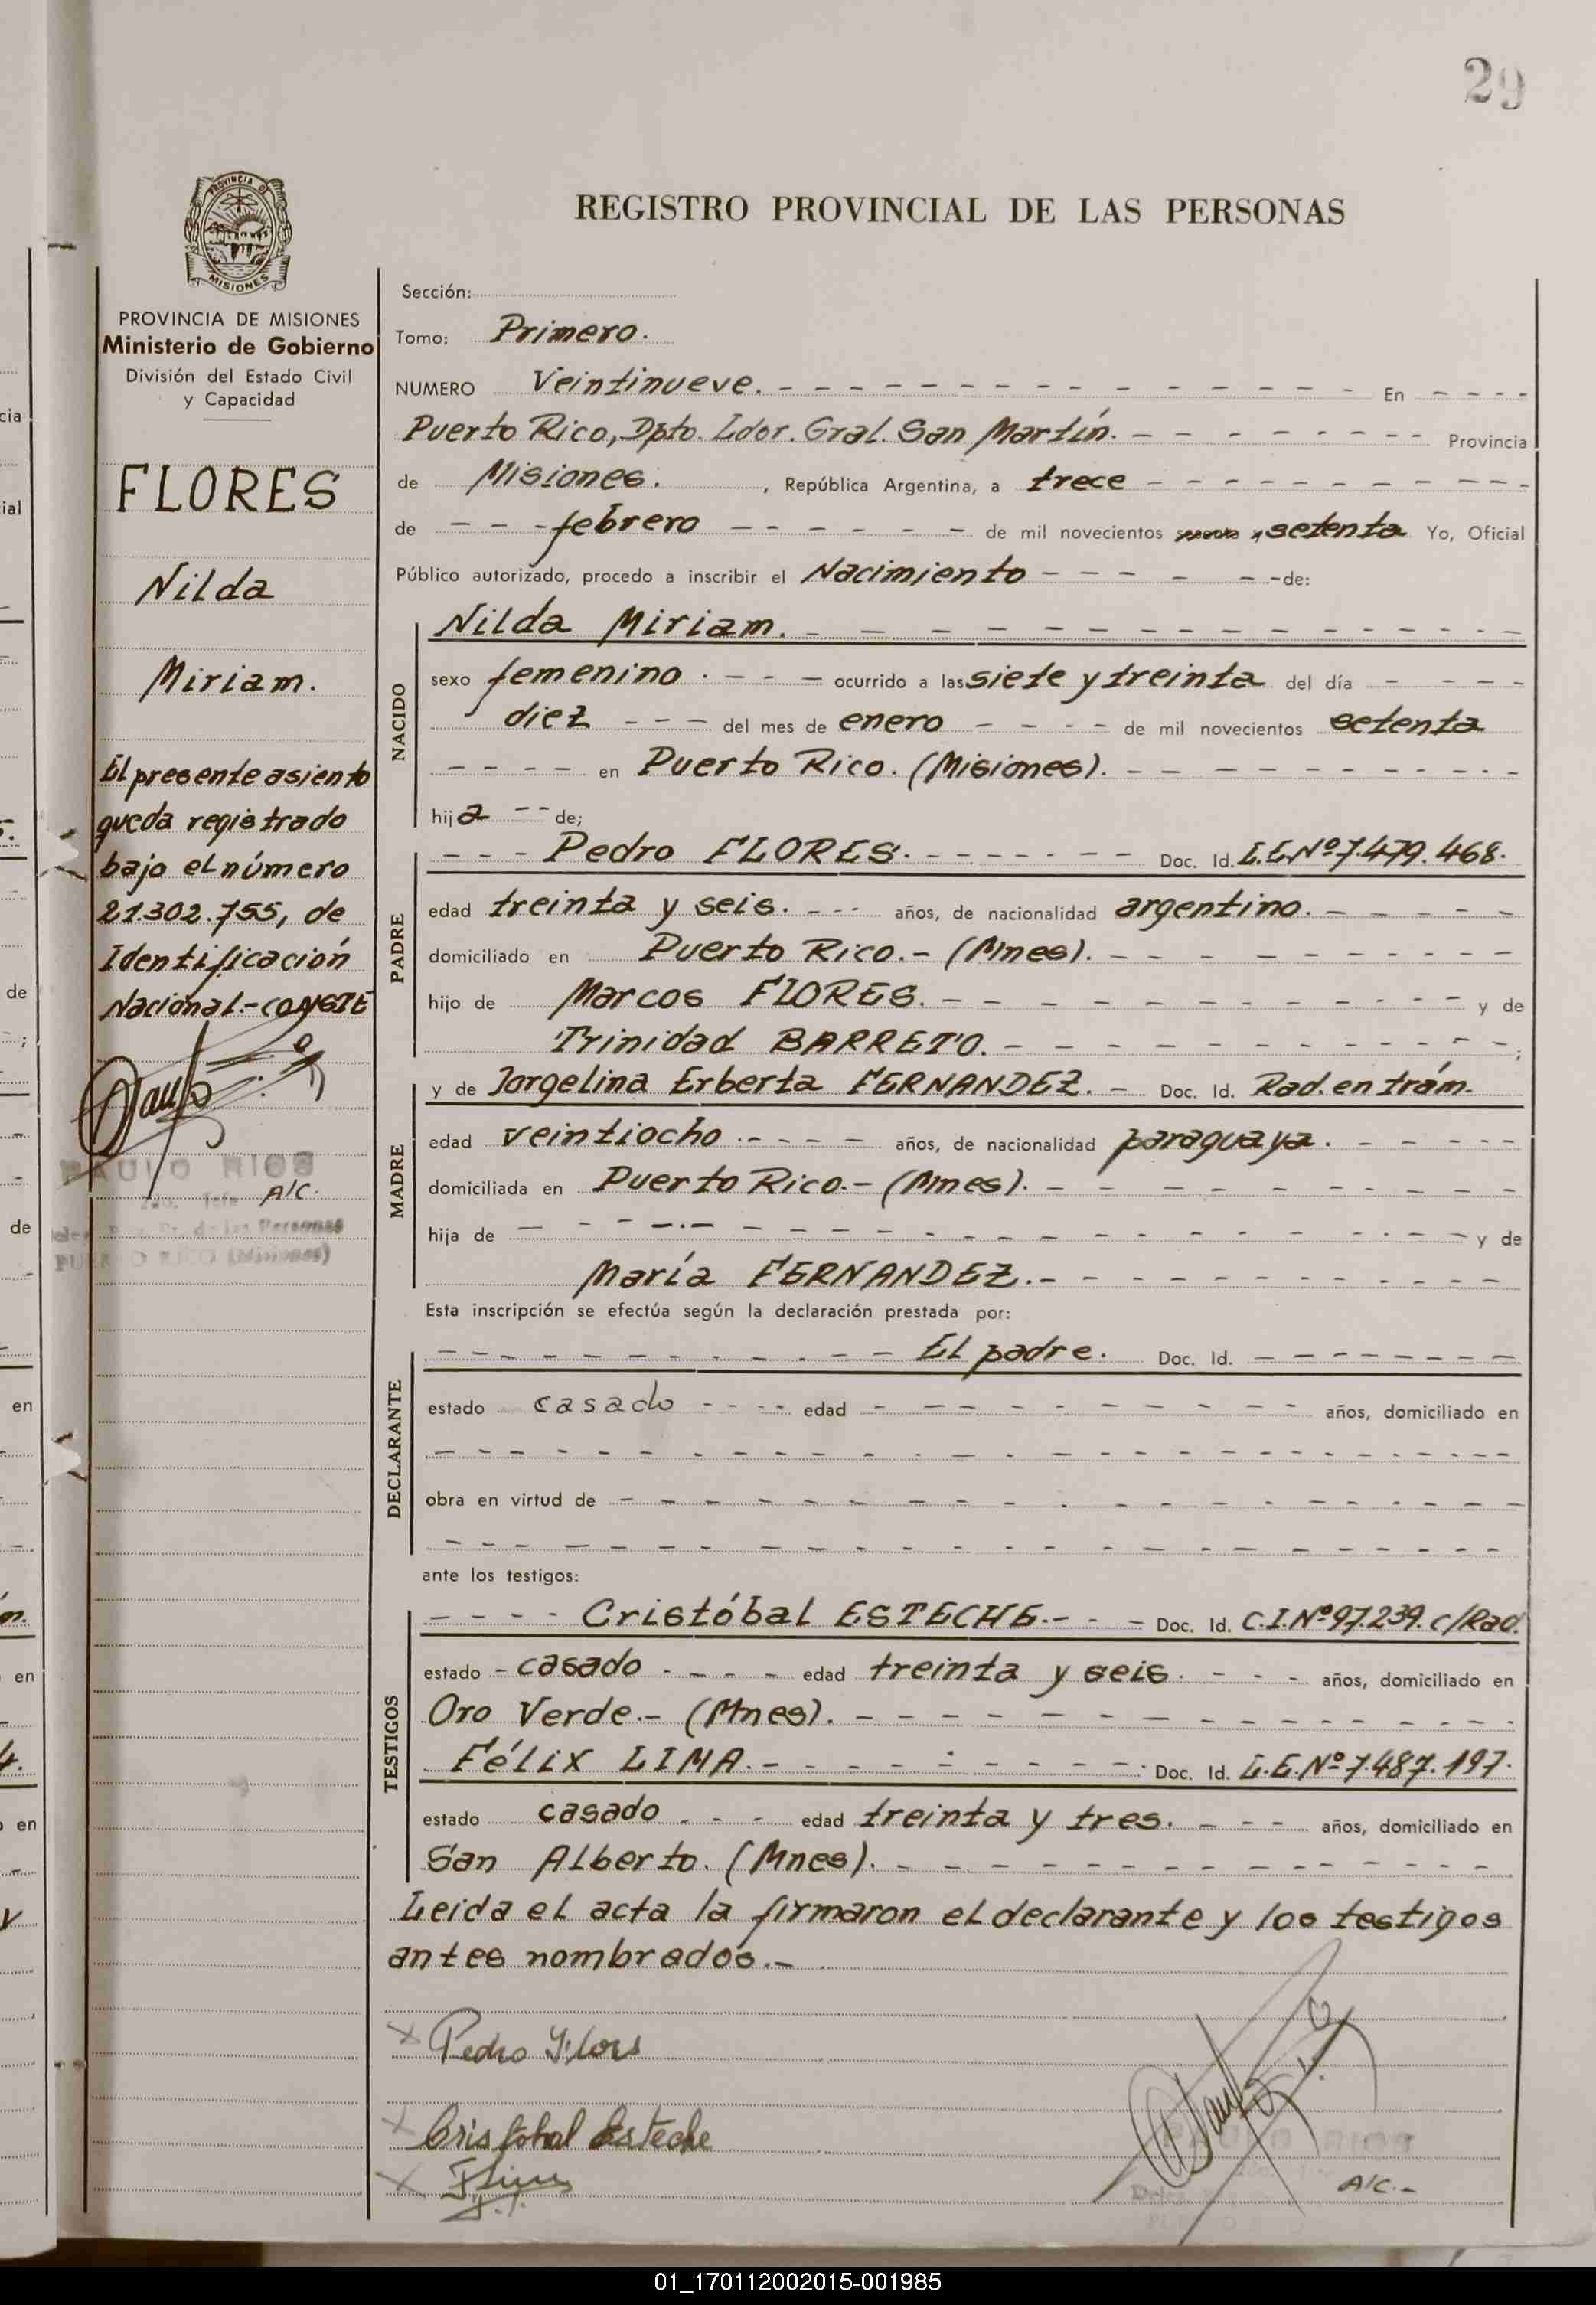 29
REGISTRO PROVINCIAL DE LAS PERSONAS
PROVINCIA DE MISIONES
PROVINCIA DE MISIONES
Ministerio de Gobierno
División del Estado Civil
y Capacidad
FLORES
Nilda
Miriam.
El presente asiento
queda registrado
bajo el número
21.302.755, de
Identificación
Nacional.- CONSTE
PAULO RIOS
2do. Jefe A/C.
Reg. Pr. de las Personas
PUERTO RICO (Misiones)
Sección:
Tomo: Primero.
NUMERO Veintinueve. En
Puerto Rico, Dpto. Ldor. Gral. San Martín. Provincia
de Misiones. , República Argentina, a trece
de febrero de mil novecientos setenta Yo, Oficial
Público autorizado, procedo a inscribir el Nacimiento de:
NACIDO
Nilda Miriam.
sexo femenino. ocurrido a las siete y treinta del día
diez del mes de enero de mil novecientos setenta
en Puerto Rico. (Misiones).
hija de;
PADRE
Pedro FLORES. Doc. Id. L.E.Nº 7.479.468.
edad treinta y seis. años, de nacionalidad argentino.
domiciliado en Puerto Rico.- (Mnes).
hijo de Marcos FLORES. y de
Trinidad BARRETO. ;
MADRE
y de Jorgelina Erberta FERNANDEZ. Doc. Id. Rad. en trám.
edad veintiocho. años, de nacionalidad paraguaya.
domiciliada en Puerto Rico.- (Mnes).
hija de y de
María FERNANDEZ.
Esta inscripción se efectúa según la declaración prestada por:
DECLARANTE
El padre. Doc. Id.
estado casado edad años, domiciliado en
obra en virtud de
ante los testigos:
TESTIGOS
Cristóbal ESTECHE. Doc. Id. C.I.Nº 97.239. c/Rad.
estado casado edad treinta y seis. años, domiciliado en
Oro Verde.- (Mnes).
Félix LIMA. Doc. Id. L.E.Nº 7.487.197.
estado casado edad treinta y tres. años, domiciliado en
San Alberto. (Mnes).
Leida el acta la firmaron el declarante y los testigos
antes nombrados.-
x Pedro Flors
x Cristobal Esteche
PAULO RIOS
A/C.-
01_170112002015-001985